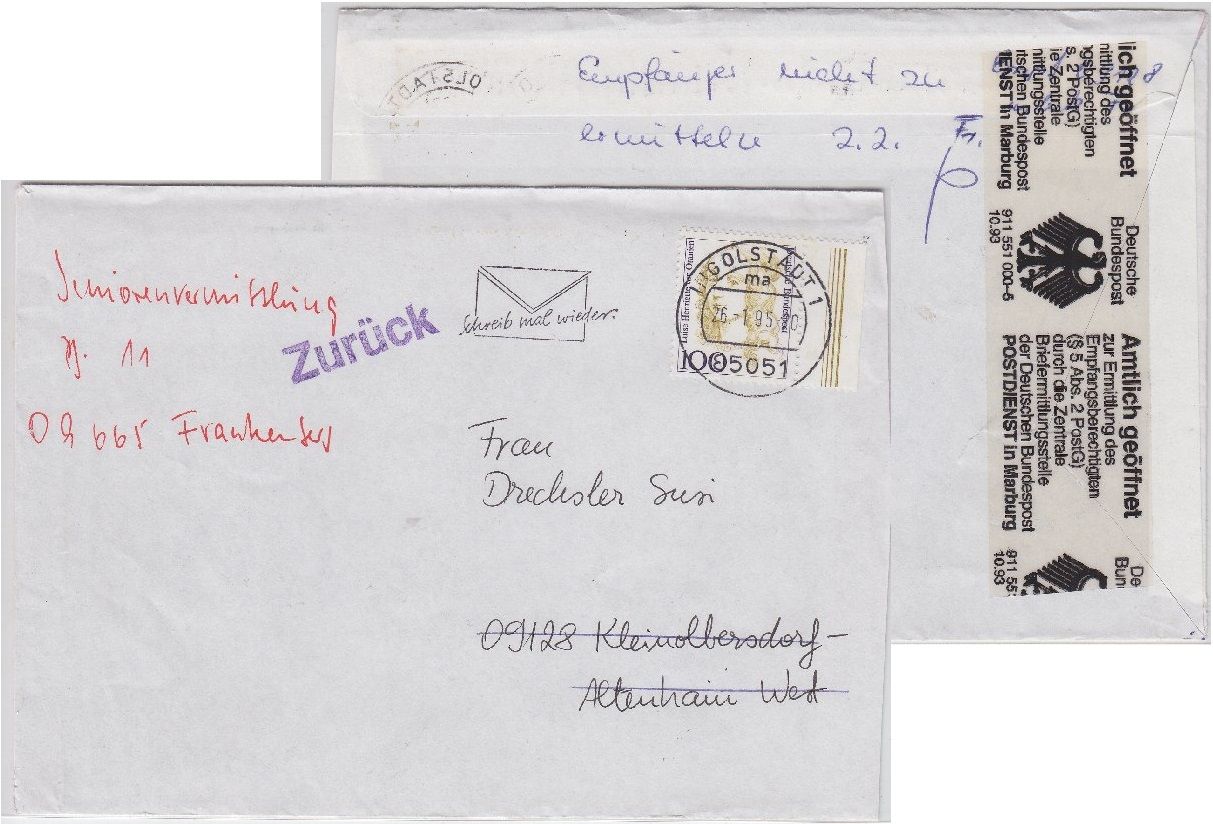 Empfänger nicht zu
ermitteln 2.2.
OLSTADT
lich geöffnet
nittlung des
ngsberechtigten
s. 2 PostG)
ie Zentrale
nittlungsstelle
tschen Bundespost
IENST in Marburg
Deutsche
Bundespost
911 551 000-5
10.93
Amtlich geöffnet
zur Ermittlung des
Empfangsberechtigten
(§ 5 Abs. 2 PostG)
durch die Zentrale
Briefermittlungsstelle
der Deutschen Bundespost
POSTDIENST in Marburg
De
Bun
911 55
10.93
Seniorenvermittlung
11
Zurück
Schreib mal wieder.
INGOLSTADT 1
ma
26.-1.95
85051
100
Frau
Drechsler Susi
09128 Kleinolbersdorf-
Altenhain West